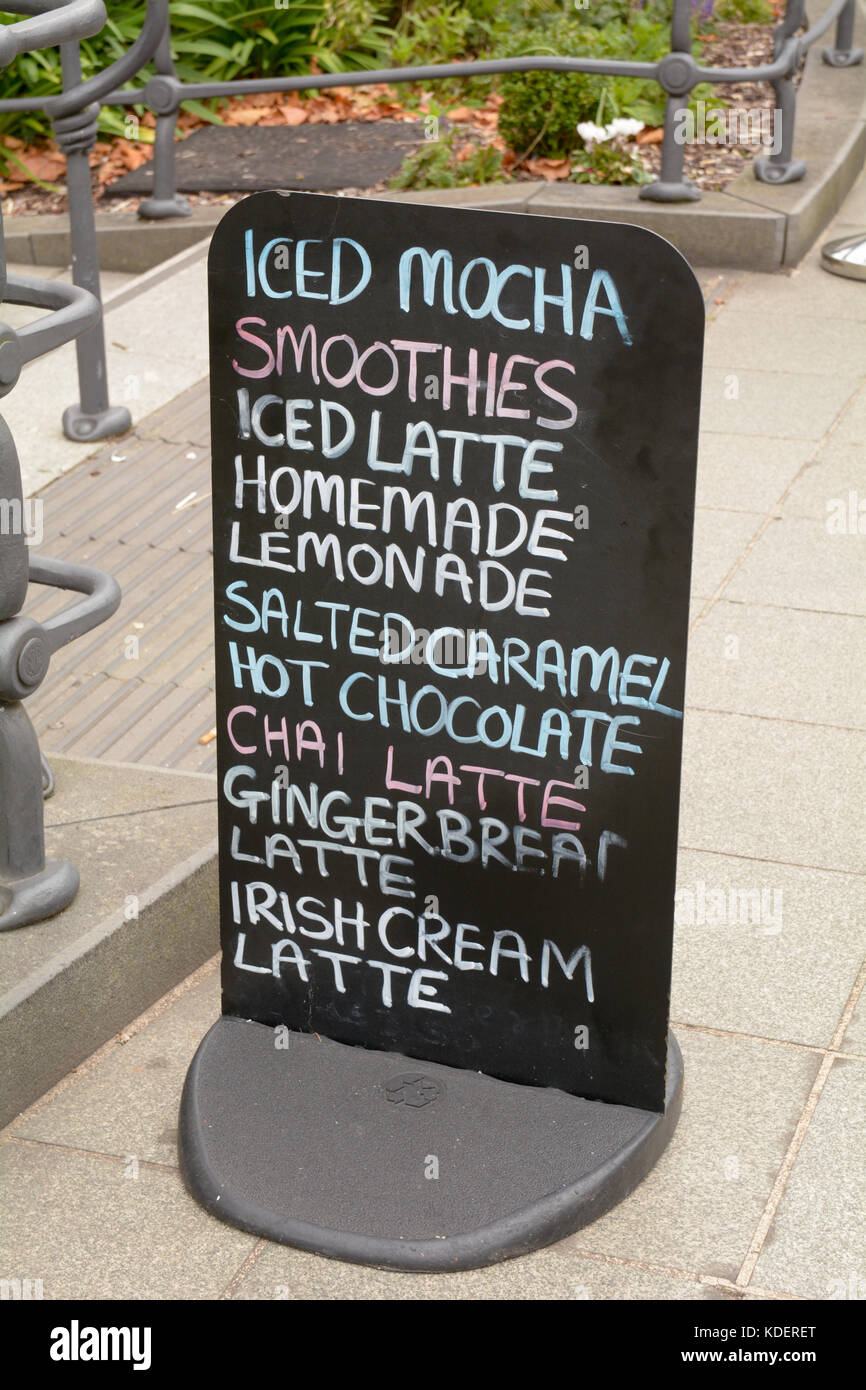 ICED MOCHA
SMOOTHIES
ICED LATTE
HOMEMADE
LEMONADE
SALTED CARAMEL
HOT CHOCOLATE
CHAI LATTE
GINGERBREAT
LATTE
IRISH CREAM
LATTE
alamy
Image ID: KDERET
www.alamy.com